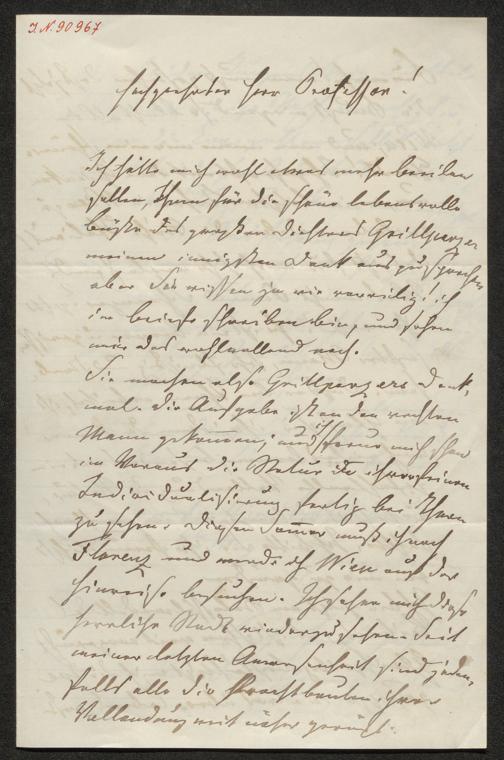 I.N. 90967
Hochgeehrter Herr Professor!
Ich hätte mich wohl etwas mehr beeilen
sollen, Ihnen für die schöne lebensvolle
büste des großen Dichters Grillparzer
meinen innigsten Dank auszusprechen
aber Sie wissen ja wie ich
im briefe schreiben bin, und sehen
mir das wohlwollend nach.
Sie machen also Grillparzers Denk,
mal. Die Aufgabe ist an den rechten
Mann gekommen, und ich freue mich schon
im Voraus die Statue in ihrer feinen
Individualisirung fertig bei Ihnen
zu sehen. Diesen Sommer muß ich nach
Florenz und werde ich Wien auf der
Hinreise besuchen. Ich sehne mich diese
herrliche Stadt wiederzusehen. Seit
meiner letzten Anwesenheit sind jeden,
falls alle die Prachtbauten ihrer
Vollendung weit näher gerückt.